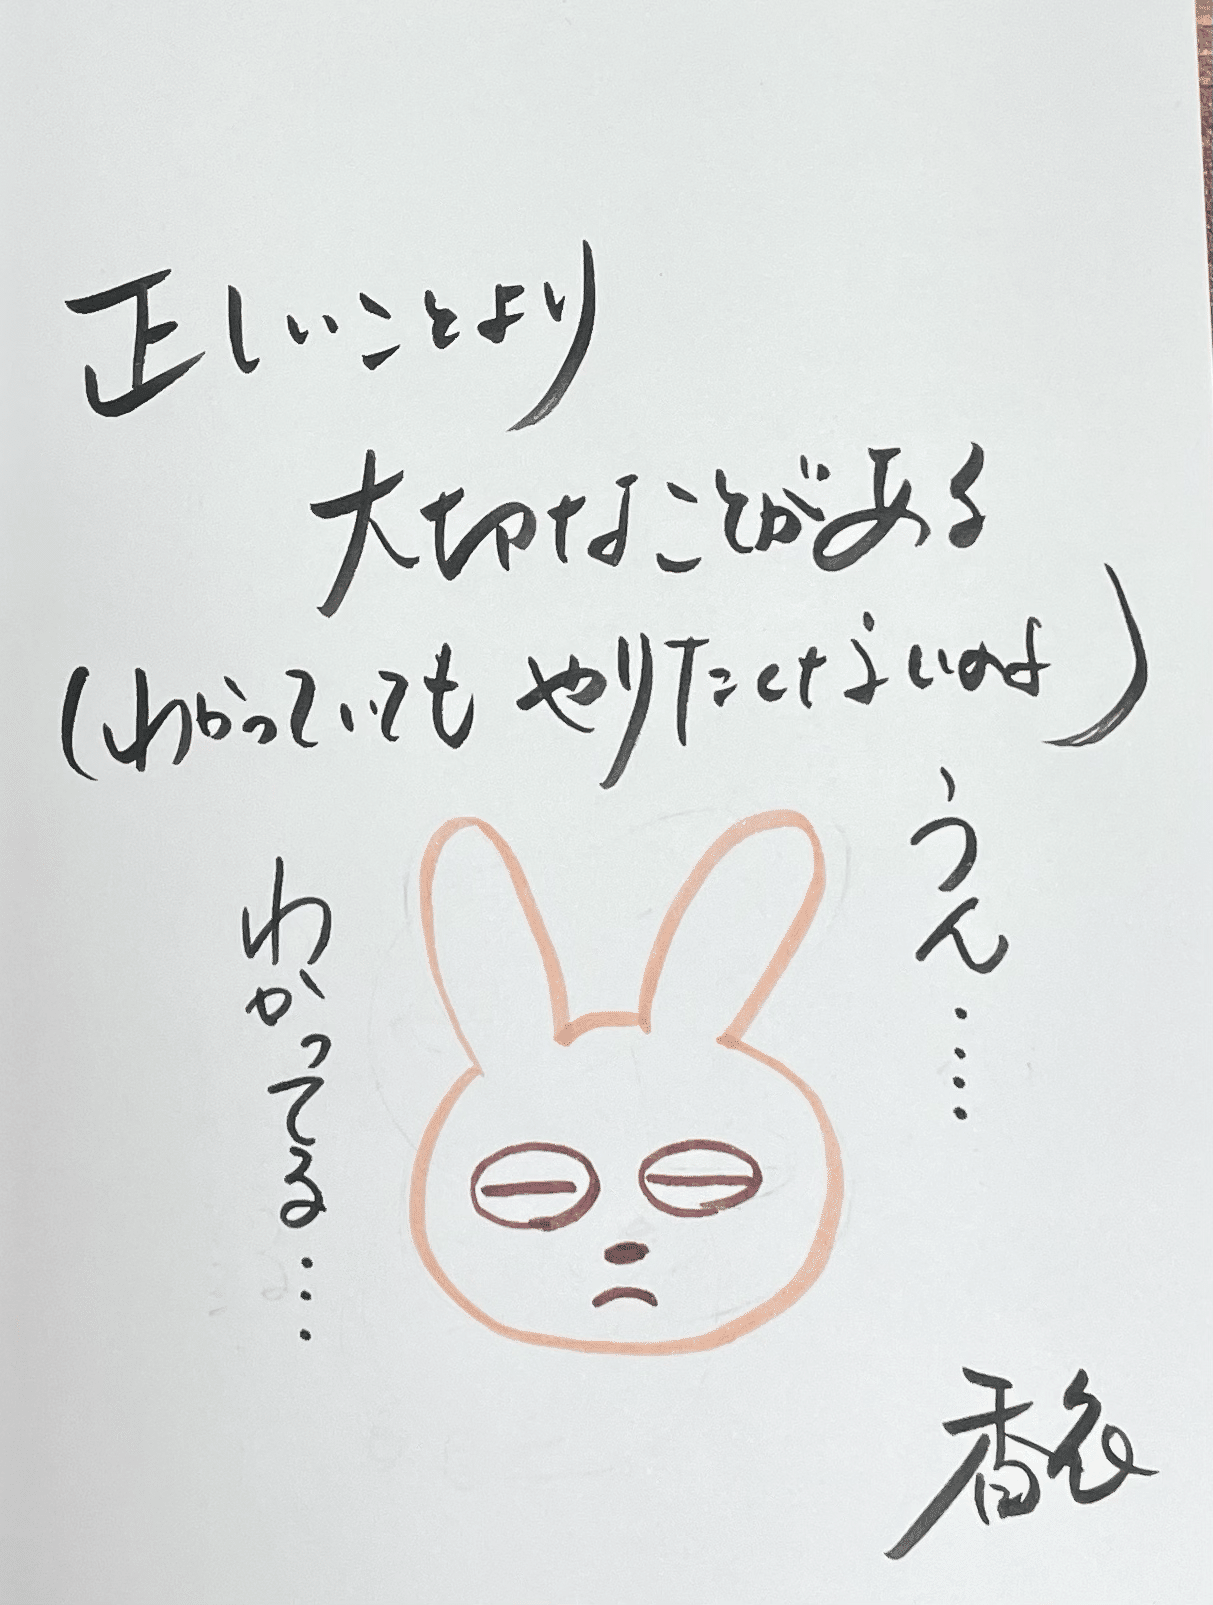 正しいことより
大切なことがある
(わかっていても やりたくないのよ)
うん‥‥
わかってる…
香衣